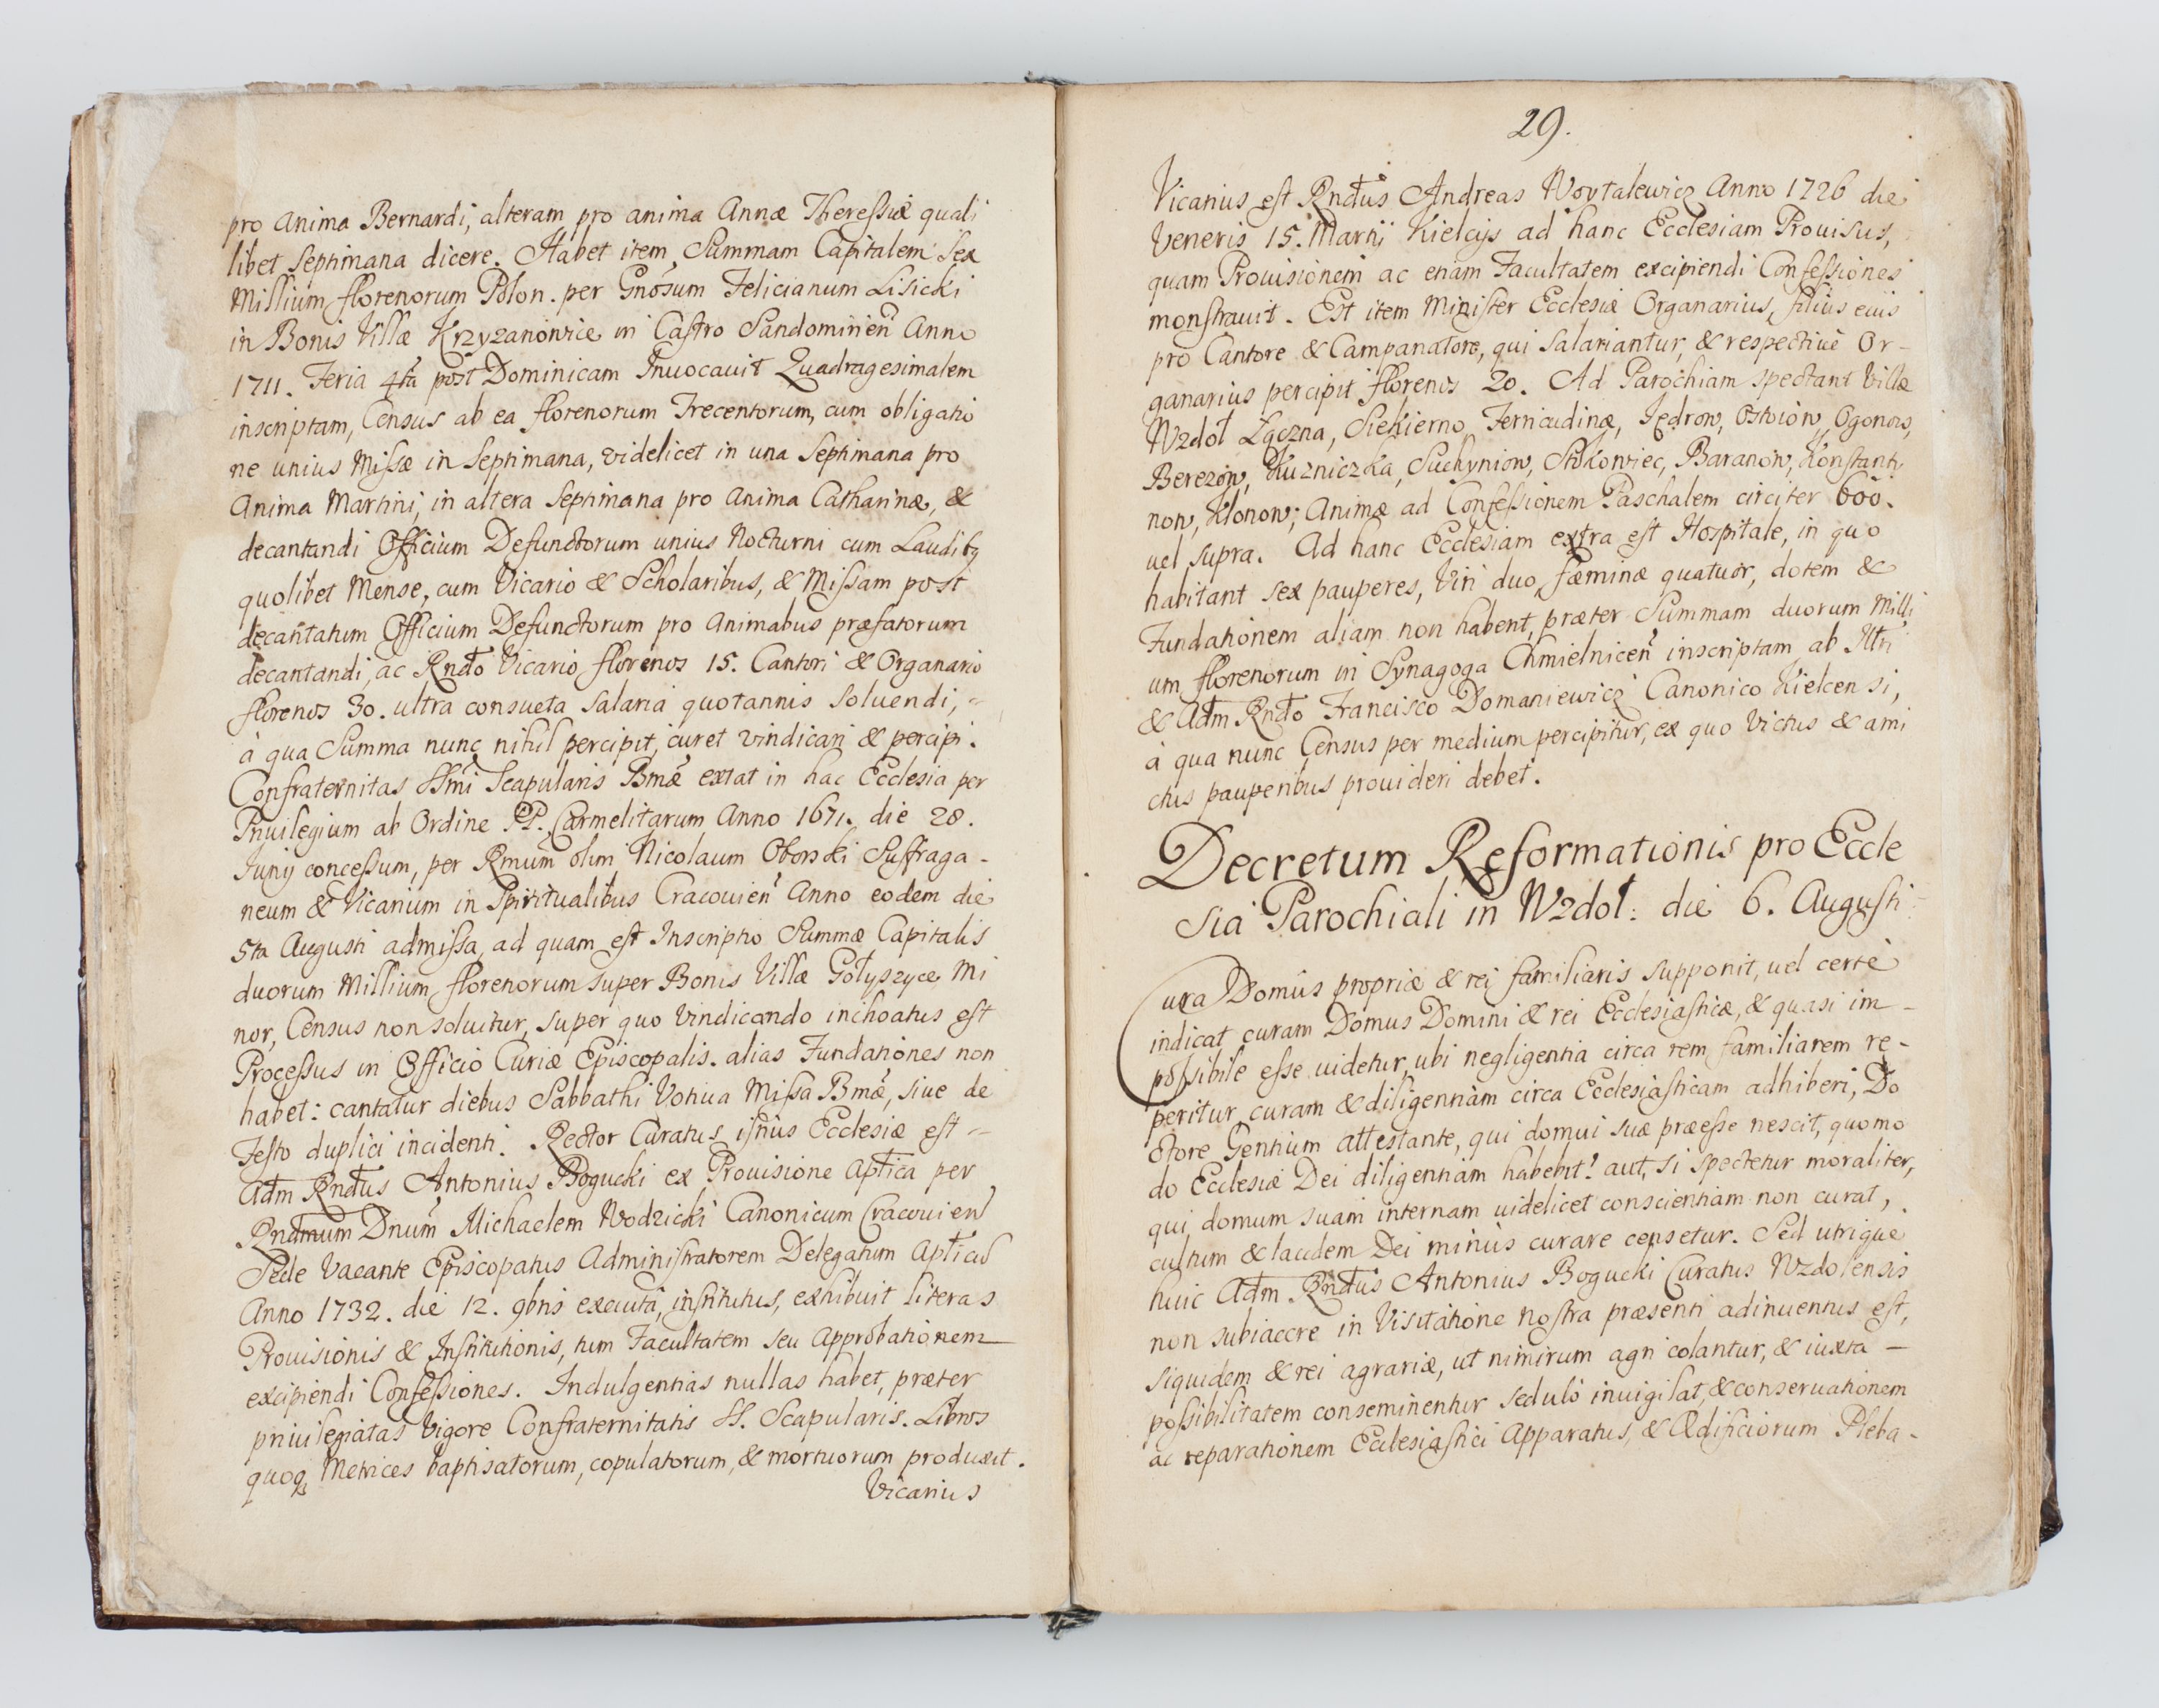 pro Anima Bernardi, alteram pro anima Annæ Theressiæ quali
libet Septimana dicere. Habet item Summam Capitalem Sex
Millium florenorum Polon. per Gnosum Felicianum Lisicki
in Bonis Villæ Krzyzanowice in Castro Sandomirien Anno
1711. Feria 4ta post Dominicam Invocavit Quadragesimalem
inscriptam, Census ab ea florenorum Trecentorum, cum obligatio
ne unius Missæ in Septimana, videlicet in una Septimana pro
Anima Martini, in altera Septimana pro Anima Catharinæ, &
decantandi Officium Defunctorum unius Nocturni cum Laudibq
quolibet Mense, cum Vicario & Scholaribus, & Missam post
decantatum Officium Defunctorum pro Animabus præfatorum
decantandi, ac Rndo Vicario florenos 15. Cantori & Organario
florenos 30. ultra consueta Salaria quotannis Soluendi, =
à qua Summa nunc nihil percipit, curet vindicari & percipi.
Confraternitas SSmi Scapularis Bmæ extat in hac Ecclesia per
Priuilegium ab Ordine PP. Carmelitarum Anno 1671. die 28.
Junij concessum, per Rmum olim Nicolaum Oborski Suffraga-
neum & Vicarium in Spiritualibus Cracouien Anno eodem die
5ta Augusti admissa, ad quam est Inscriptio Summæ Capitalis
duorum Millium florenorum super Bonis Villæ Gołyszyce Mi
nor, Census non soluitur, super quo Vindicando inchoatus est
Processus in Officio Curiæ Episcopalis. alias Fundationes non
habet: cantatur diebus Sabbathi Votiua Missa Bmæ, siue de
Festo duplici incidenti. Rector Curatus istius Ecclesiæ est =
Adm Rndus Antonius Bogucki ex Prouisione Aptica per
Rndmum Dnum Michaelem Wodzicki Canonicum Cracouien
Sede Vacante Episcopatus Administratorem Delegatum Apticu
Anno 1732. die 12. 9bris exeunta, institutus, exhibuit literas
Prouisionis & Institutionis, tum Facultatem seu Approbationem
excipiendi Confessiones. Indulgentias nullas habet, præter
priuilegiatas Vigore Confraternitatis SS. Scapularis. Libros
quoq Metrices baptisatorum, copulatorum, & mortuorum produxit.
Vicarius
29.
Vicarius est Rndus Andreas Woytalewicz Anno 1726 die
Veneris 15. Martij Kielcijs ad hanc Ecclesiam Prouisus,
quam Prouisionem ac etiam Facultatem excipiendi Confessiones
monstrauit. Est item Minister Ecclesiæ Organarius, filius eius
pro Cantore & Campanatore, qui Salariantur, & respectiuè Or-
ganarius percipit florenos 20. Ad Parochiam spectant Villæ
Wzdoł Łączna, Siekierno, Ternicudinæ, Jędrow, Ostoiow, Ogonow,
Berezow, Kuzniczka, Suchyniow, Stokowiec, Baranow, Konstanti
now, Klonow; Animæ ad Confessionem Paschalem circiter 600.
uel supra. Ad hanc Ecclesiam extra est Hospitale, in quo
habitant sex pauperes, Viri duo, fæminæ quatuor, dotem &
Fundationem aliam non habent, præter Summam duorum Milli
um florenorum in Synagoga Chmielnicen inscriptam ab Illri
& Adm Rndo Francisco Domaniewicz Canonico Kielcensi,
à qua nunc Census per medium percipitur, ex quo Victus & ami
ctus pauperibus prouideri debet.
Decretum Reformationis pro Eccle
sia Parochiali in Wzdoł: die 6. Augusti
Cura Domûs propriæ & rei familiaris supponit, uel certè
indicat curam Domus Domini & rei Ecclesiasticæ, & quasi im-
possibile esse uidetur, ubi negligentia circa rem familiarem re-
peritur, curam & diligentiam circa Ecclesiasticam adhiberi, Do
ctore Gentium attestante, qui domui suæ præesse nescit, quomo
do Ecclesiæ Dei diligentiam habebit? aut, si spectetur moraliter,
qui domum suam internam uidelicet conscientiam non curat,
cultum & laudem Dei minùs curare censetur. Sed utrique
huic Adm Rndus Antonius Bogucki Curatus Wzdolensis
non subiacere in Visitatione nostra præsenti adinuentus est,
siquidem & rei agrariæ, ut nimirum agri colantur, & iuxta -
possibilitatem conseminentur sedulò inuigilat, & conseruationem
ac reparationem Ecclesiastici Apparatus, & Ædificiorum Pleba-